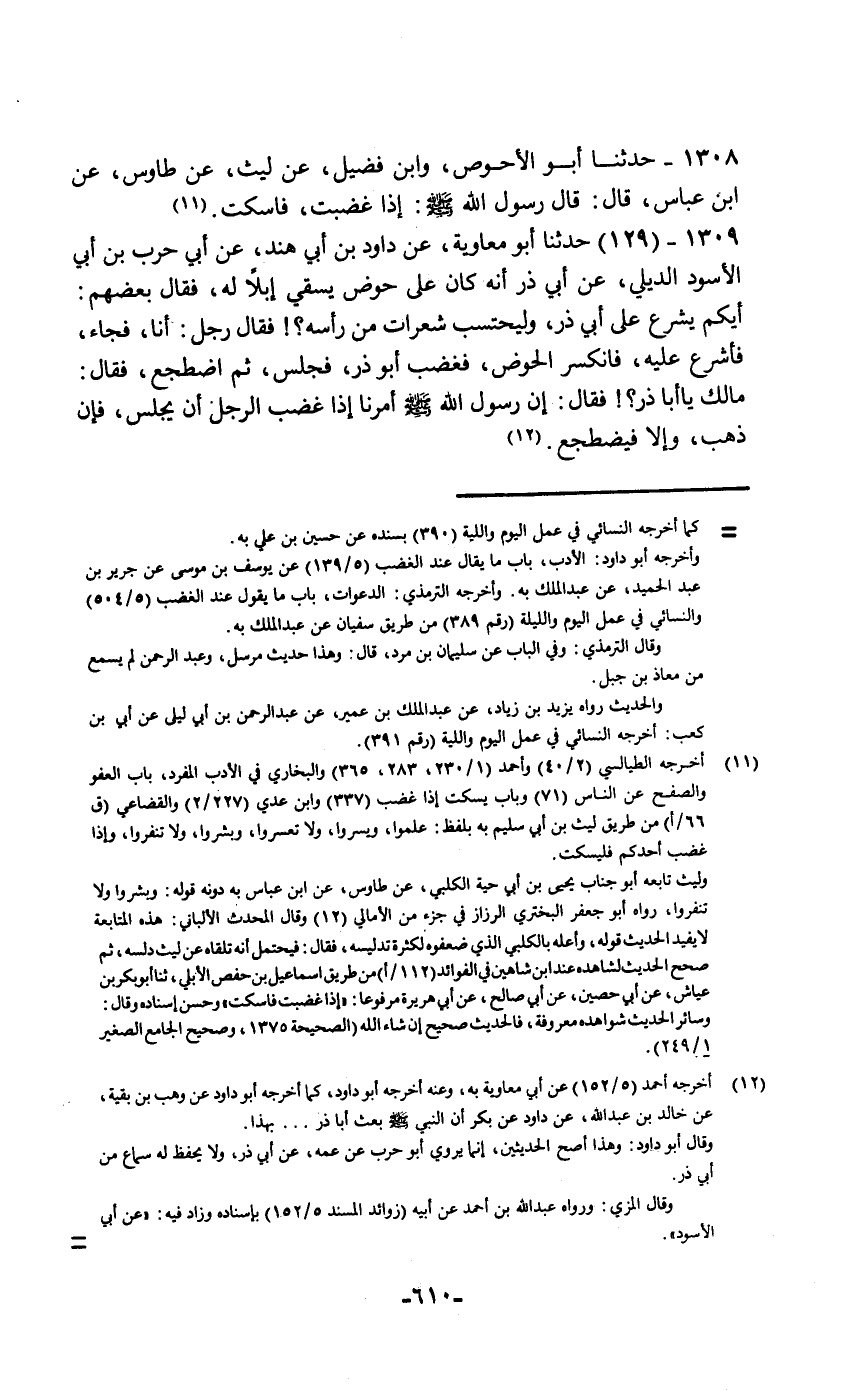 ١٣٠٨ - حدثنـــا أبـــو الأحـوص، وابن فضيل، عن ليث، عن طاوس، عن
ابن عباس، قال: قال رسول الله ﷺ: إذا غضبت، فاسكت. (١١)
١٣٠٩ - (١٢٩) حدثنا أبو معاوية، عن داود بن أبي هند، عن أبي حرب بن أبي
الأسود الديلي، عن أبي ذر أنه كان على حوض يسقي إبلًا له، فقال بعضهم:
أيكم يشرع على أبي ذر، وليحتسب شعرات من رأسه؟! فقال رجل: أنا، فجاء،
فأشرع عليه، فانكسر الحوض، فغضب أبو ذر، فجلس، ثم اضطجع، فقال:
مالك ياأبا ذر؟! فقال: إن رسول الله ﷺ أمرنا إذا غضب الرجل أن يجلس، فإن
ذهب، وإلا فيضطجع. (١٢)
= كما أخرجه النسائي في عمل اليوم واللية (٣٩٠) بسنده عن حسين بن علي به.
وأخرجه أبو داود: الأدب، باب ما يقال عند الغضب (١٣٩/٥) عن يوسف بن موسى عن جرير بن
عبد الحميد، عن عبدالملك به. وأخرجه الترمذي: الدعوات، باب ما يقول عند الغضب (٥٠٤/٥)
والنسائي في عمل اليوم والليلة (رقم ٣٨٩) من طريق سفيان عن عبدالملك به.
وقال الترمذي: وفي الباب عن سليمان بن مرد، قال: وهذا حديث مرسل، وعبد الرحمن لم يسمع
من معاذ بن جبل.
والحديث رواه يزيد بن زياد، عن عبدالملك بن عمير، عن عبدالرحمن بن أبي ليلى عن أبي بن
كعب: أخرجه النسائي في عمل اليوم واللية (رقم ٣٩١).
(١١) أخرجه الطيالسي (٤٠/٢) وأحمد (٢٣٠/١، ٢٨٣، ٣٦٥) والبخاري في الأدب المفرد، باب العفو
والصفح عن الناس (٧١) وباب يسكت إذا غضب (٣٣٧) وابن عدي (٢/٢٢٧) والقضاعي (ق
٦٦/أ) من طريق ليث بن أبي سليم به بلفظ: علموا، ويسروا، ولا تعسروا، وبشروا، ولا تنفروا، وإذا
غضب أحدكم فليسكت.
وليث تابعه أبو جناب يحيى بن أبي حية الكلبي، عن طاوس، عن ابن عباس به دونه قوله: وبشروا ولا
تنفروا، رواه أبو جعفر البختري الرزاز في جزء من الأمالي (١٢) وقال المحدث الألباني: هذه المتابعة
لايفيد الحديث قوله، وأعله بالكلبي الذي ضعفوه لكثرة تدليسه، فقال: فيحتمل أنه تلقاه عن ليث دلسه، ثم
صحح الحديث لشاهده عند ابن شاهين في الفوائد (١١٢/أ) من طريق اسماعيل بن حفص الأبلي، ثنا أبوبكر بن
عياش، عن أبي حصين، عن أبي صالح، عن أبي هريرة مرفوعا: «إذا غضبت فاسكت» وحسن إسناده وقال:
وسائر الحديث شواهده معروفة، فالحديث صحيح إن شاء الله (الصحيحة ١٣٧٥، وصحيح الجامع الصغير
٢٤٩/١).
(١٢) أخرجه أحمد (١٥٢/٥) عن أبي معاوية به، وعنه أخرجه أبو داود، كما أخرجه أبو داود عن وهب بن بقية،
عن خالد بن عبدالله، عن داود عن بكر أن النبي ﷺ بعث أبا ذر ... بهذا.
وقال أبو داود: وهذا أصح الحديثين، إنما يروي أبو حرب عن عمه، عن أبي ذر، ولا يحفظ له سماع من
أبي ذر.
وقال المزي: ورواه عبدالله بن أحمد عن أبيه (زوائد المسند ١٥٢/٥) بإسناده وزاد فيه: «عن أبي
الأسود». =
-٦١٠-